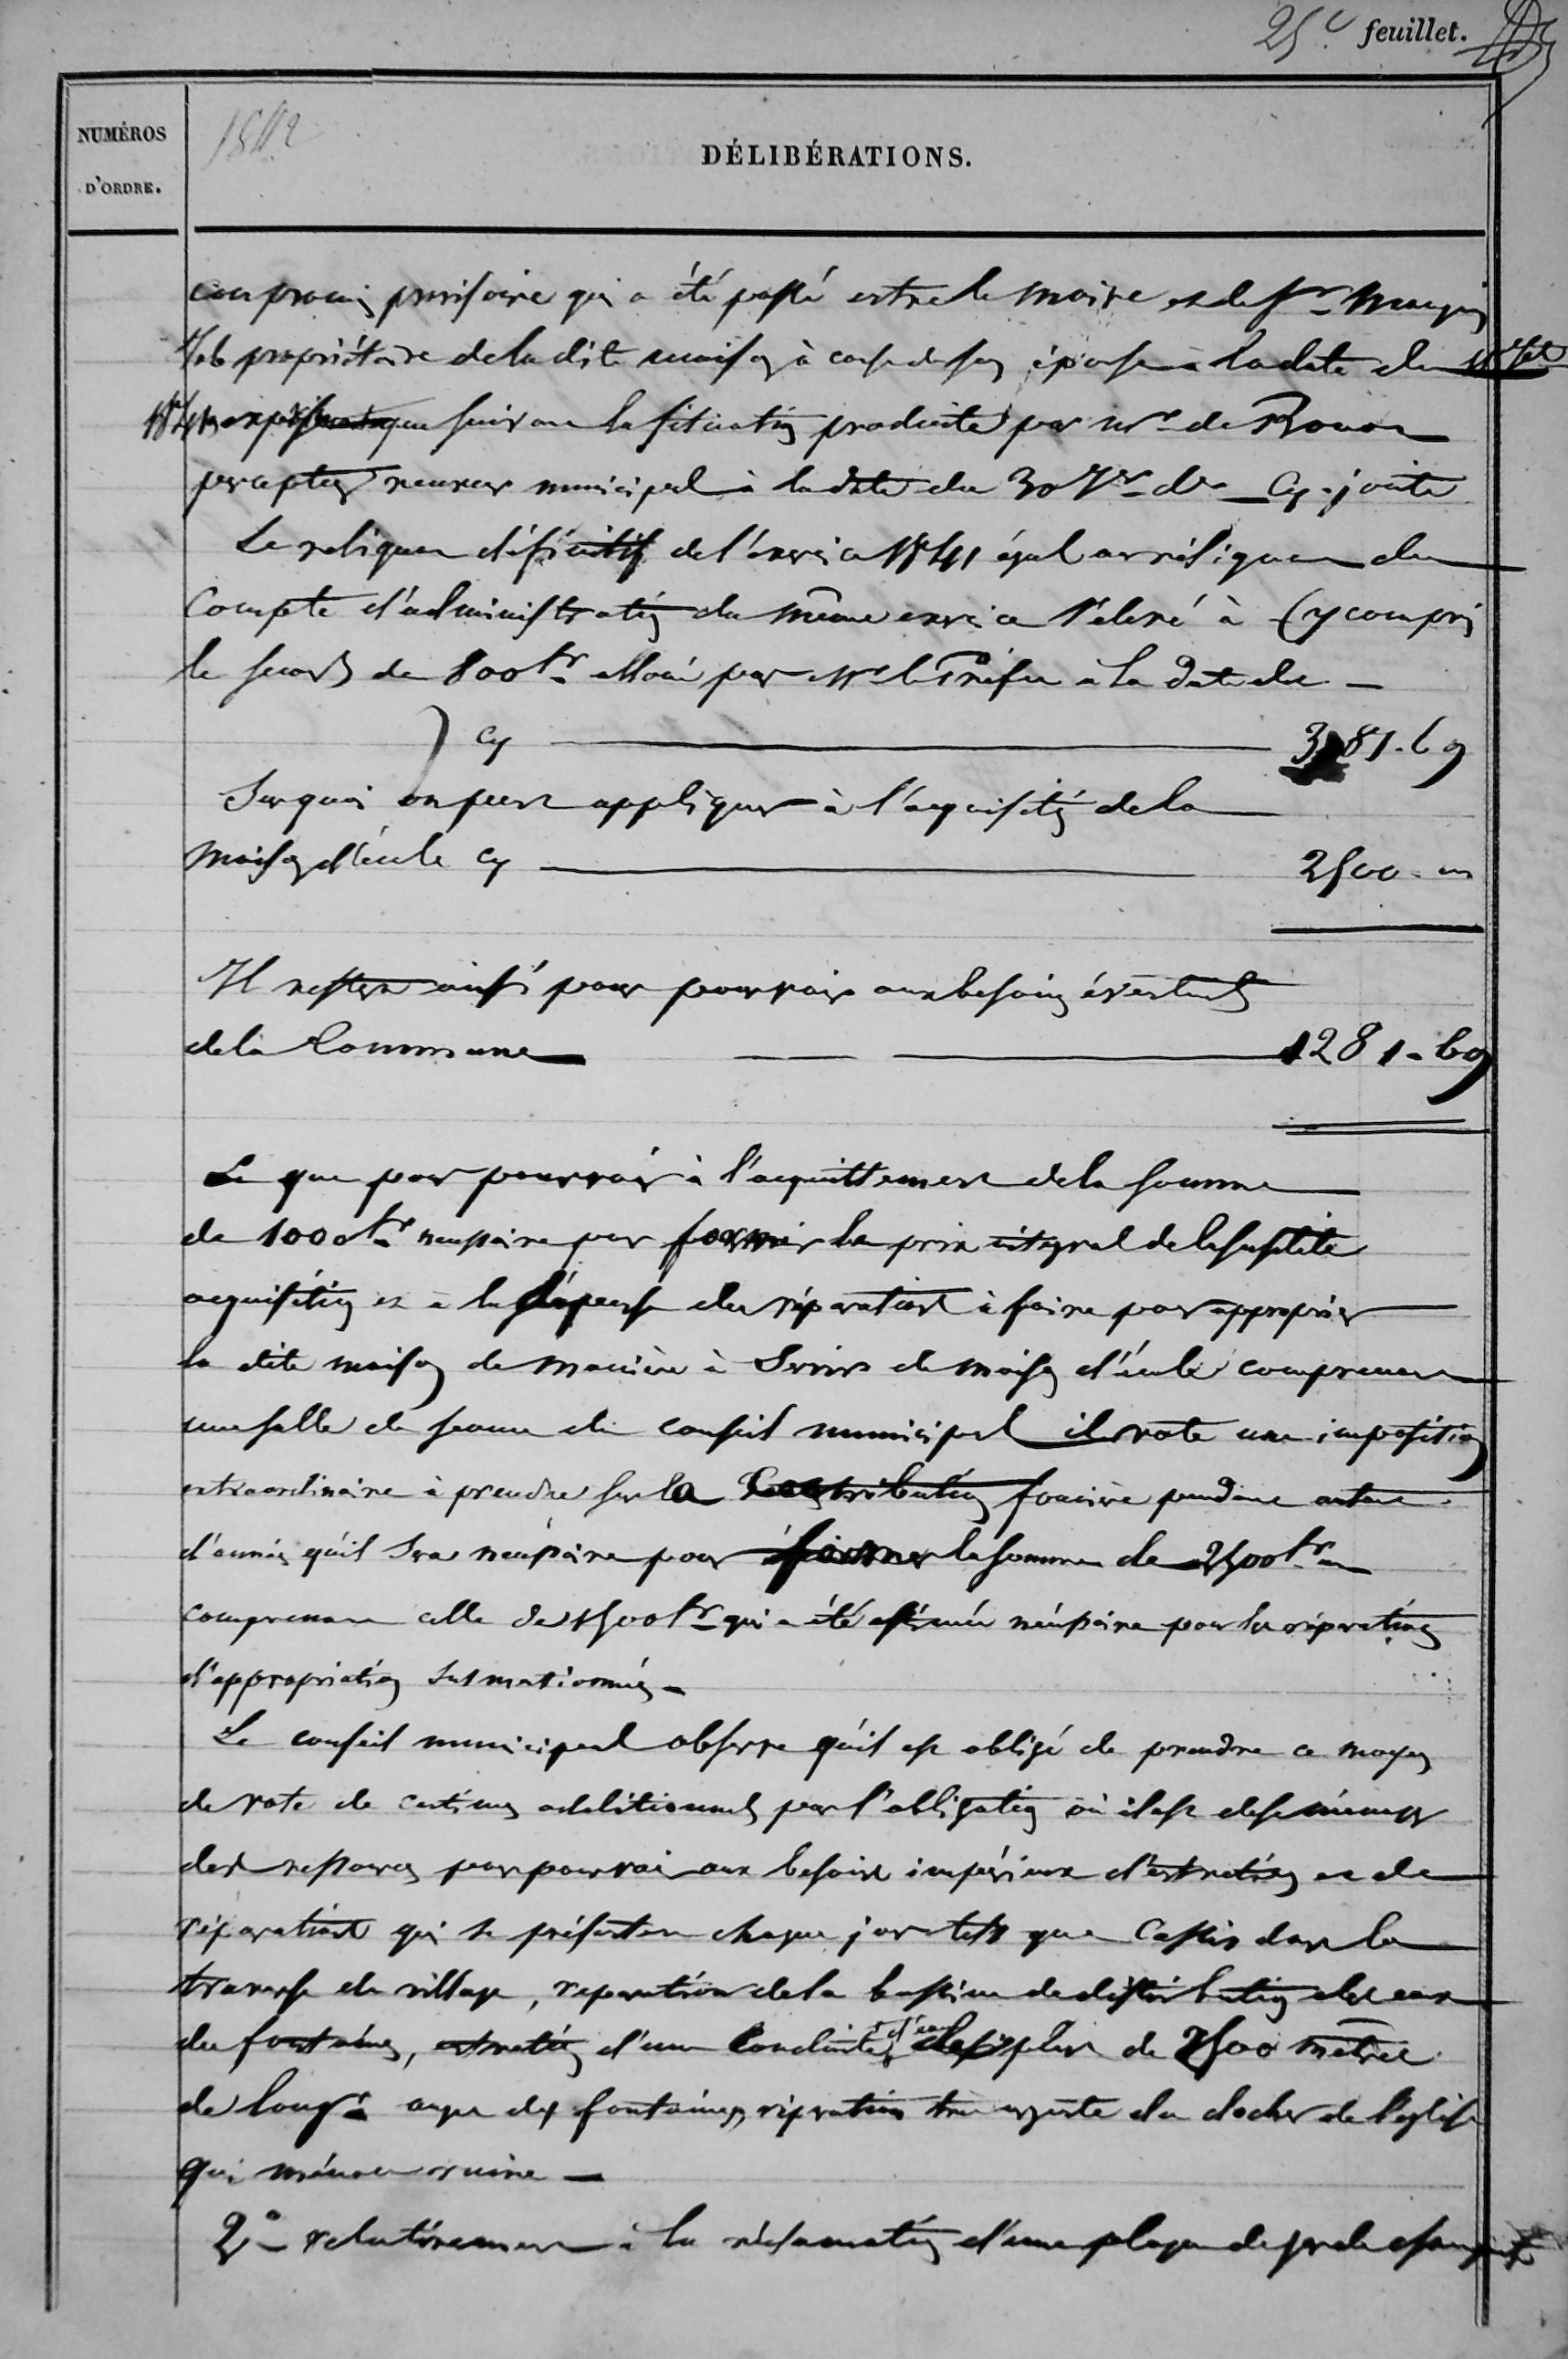 25e feuillet.
NUMÉROS
D'ORDRE.
1842
DÉLIBÉRATIONS.
compromis provisoire qui a été passé entre le maire et le Sr
propriétaire de la dite maison à cause de son épouse à la date du
que suivant la situation produite par Mr de
percepteur receveur municipal à la date du 30 cy-jointe
Le reliquat définitif de l'exercice 1841 égal au reliquat du
Compte d'administration du même exercice s'élevé à (y compris
le secours de 800 fr. alloué par Mr le Préfet à la date du —
) cy — 3781.69
Sur quoi on peut appliquer à l'acquisition de la
maison d'école cy — 2500. "
Il restera ainsi pour pourvoir aux besoins éventuels
de la Commune — 1281.69
Le que pour pourvoir à l'acquittement de la somme
de 1000 fr. nécessaire pour former le prix intégral de la susdite
acquisition et à la dépense des réparations à faire pour approprier
la dite maison de manière à servir de maison d'école comprenant
une salle de séance du conseil municipal il vote une imposition
extraordinaire à prendre sur la Contribution foncière pendant autant
d'années qu'il sera nécessaire pour former la somme de 2500 fr. en
comprenant celle de 1500 fr. qui a été estimée nécessaire pour les réparations
d'appropriation susmentionnées.
Le conseil municipal observe qu'il est obligé de prendre ce moyen
de vote de centimes additionnels par l'obligation où il est de se ménager
des ressources pour pourvoir aux besoins impérieux d'entretien et de
réparations qui se présentent chaque jour tels que cassis dans la
traverse du village, reparation de la bassine de distribution des eaux
des fontaines, entretien d'une Conduite d'eau de plus de 2500 mètres
de longr. aux fontaines, réparation très urgente du clocher de l'église
qui menace ruine —
2° relativement à la réclamation d'une plaque de